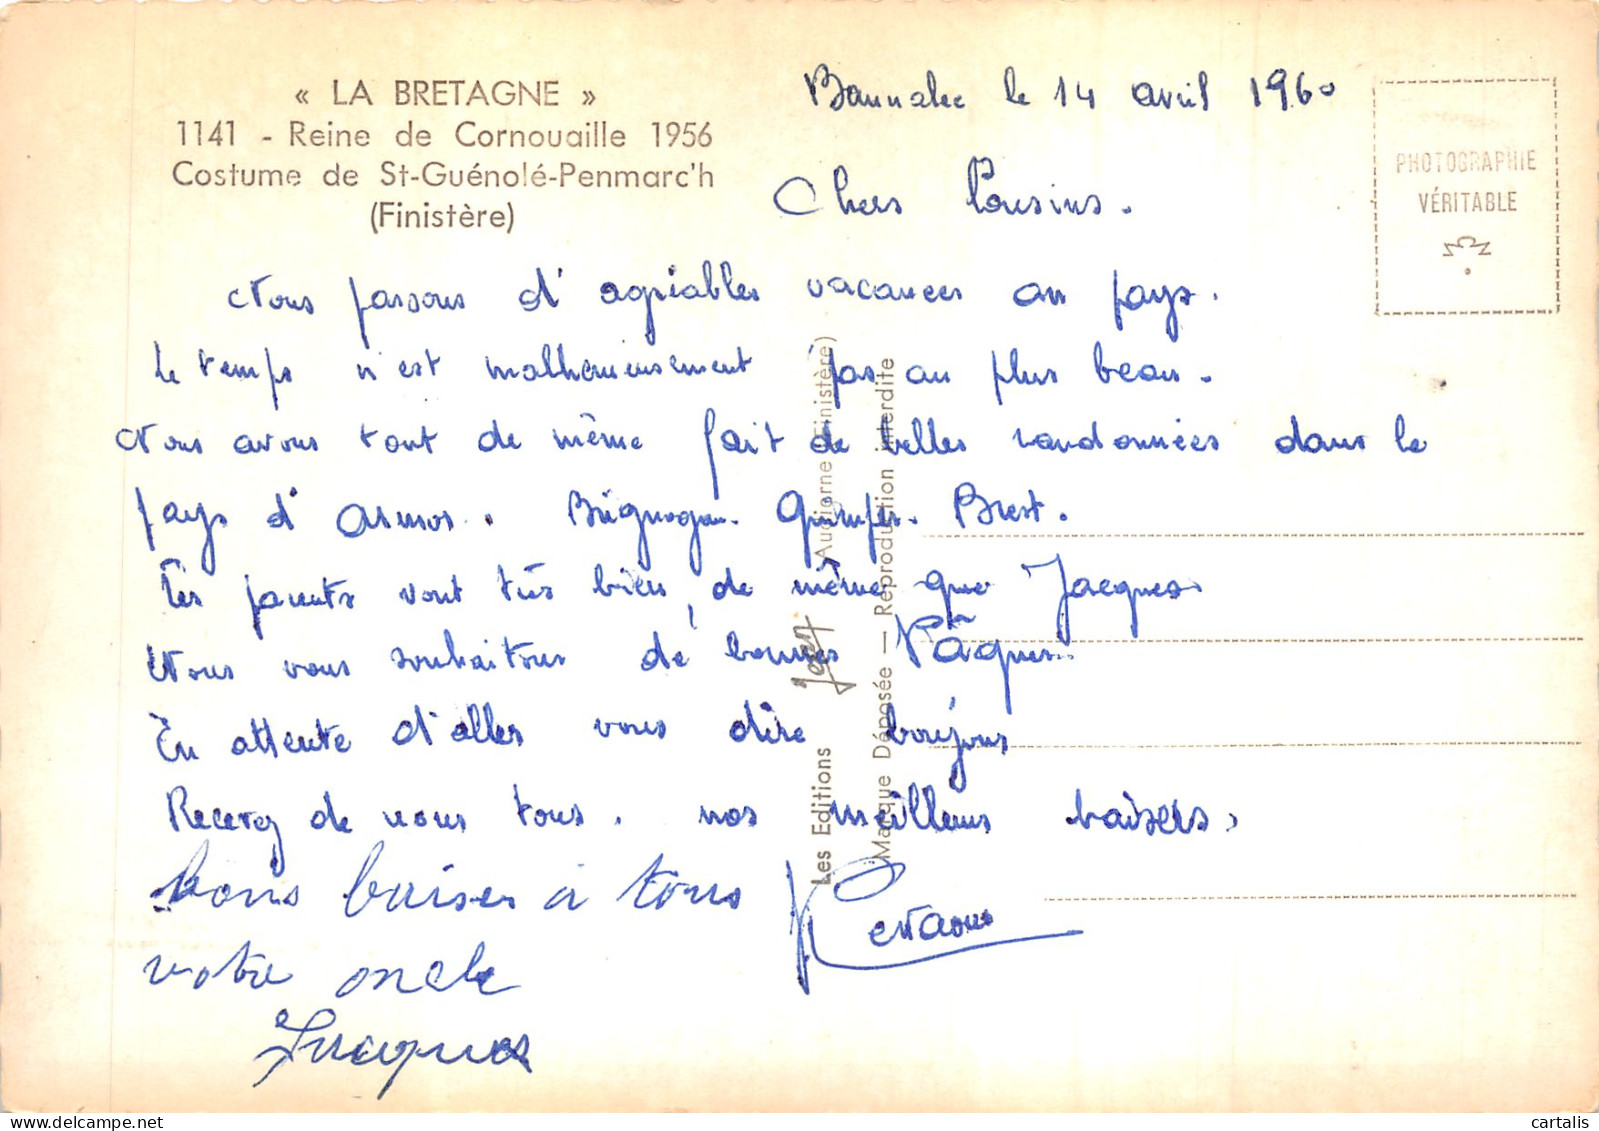 « LA BRETAGNE »
1141 - Reine de Cornouaille 1956
Costume de St-Guénolé-Penmarc'h
(Finistère)
Bannalec le 14 avril 1960
PHOTOGRAPHIE
VÉRITABLE
Chers Cousins.
Nous passons d'agréables vacances au pays.
Le temps n'est malheureusement pas au plus beau.
Nous avons tout de même fait de belles randonnées dans le
pays d'Armor. Brignogan. Quimper. Brest.
Tes parents vont très bien, de même que Jacques
Nous vous souhaitons de bonnes Pâques.
En attente d'aller vous dire bonjour
Recevez de nous tous. nos meilleurs baisers.
bons baiser à tous
votre oncle
Jacques
Les Editions Jean Audierne (Finistère)
Marque Déposée — Reproduction interdite
cartalis